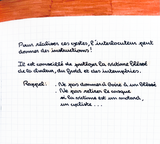 Pour réaliser ces gestes, l'interlocuteur peut
donner des instructions !
Il est conseillé de protéger la victime blessé
de la chaleur, du froid et des intempéries.
Rappel : . Ne pas donner à boire à un blessé
. Ne pas retirer le casque
si la victime est un motard,
un cycliste ...